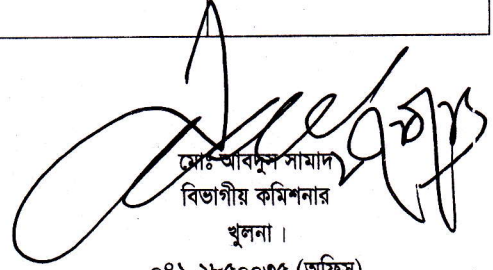 মোঃ আবদুস সামাদ
বিভাগীয় কমিশনার
খুলনা ।
(অফিস)